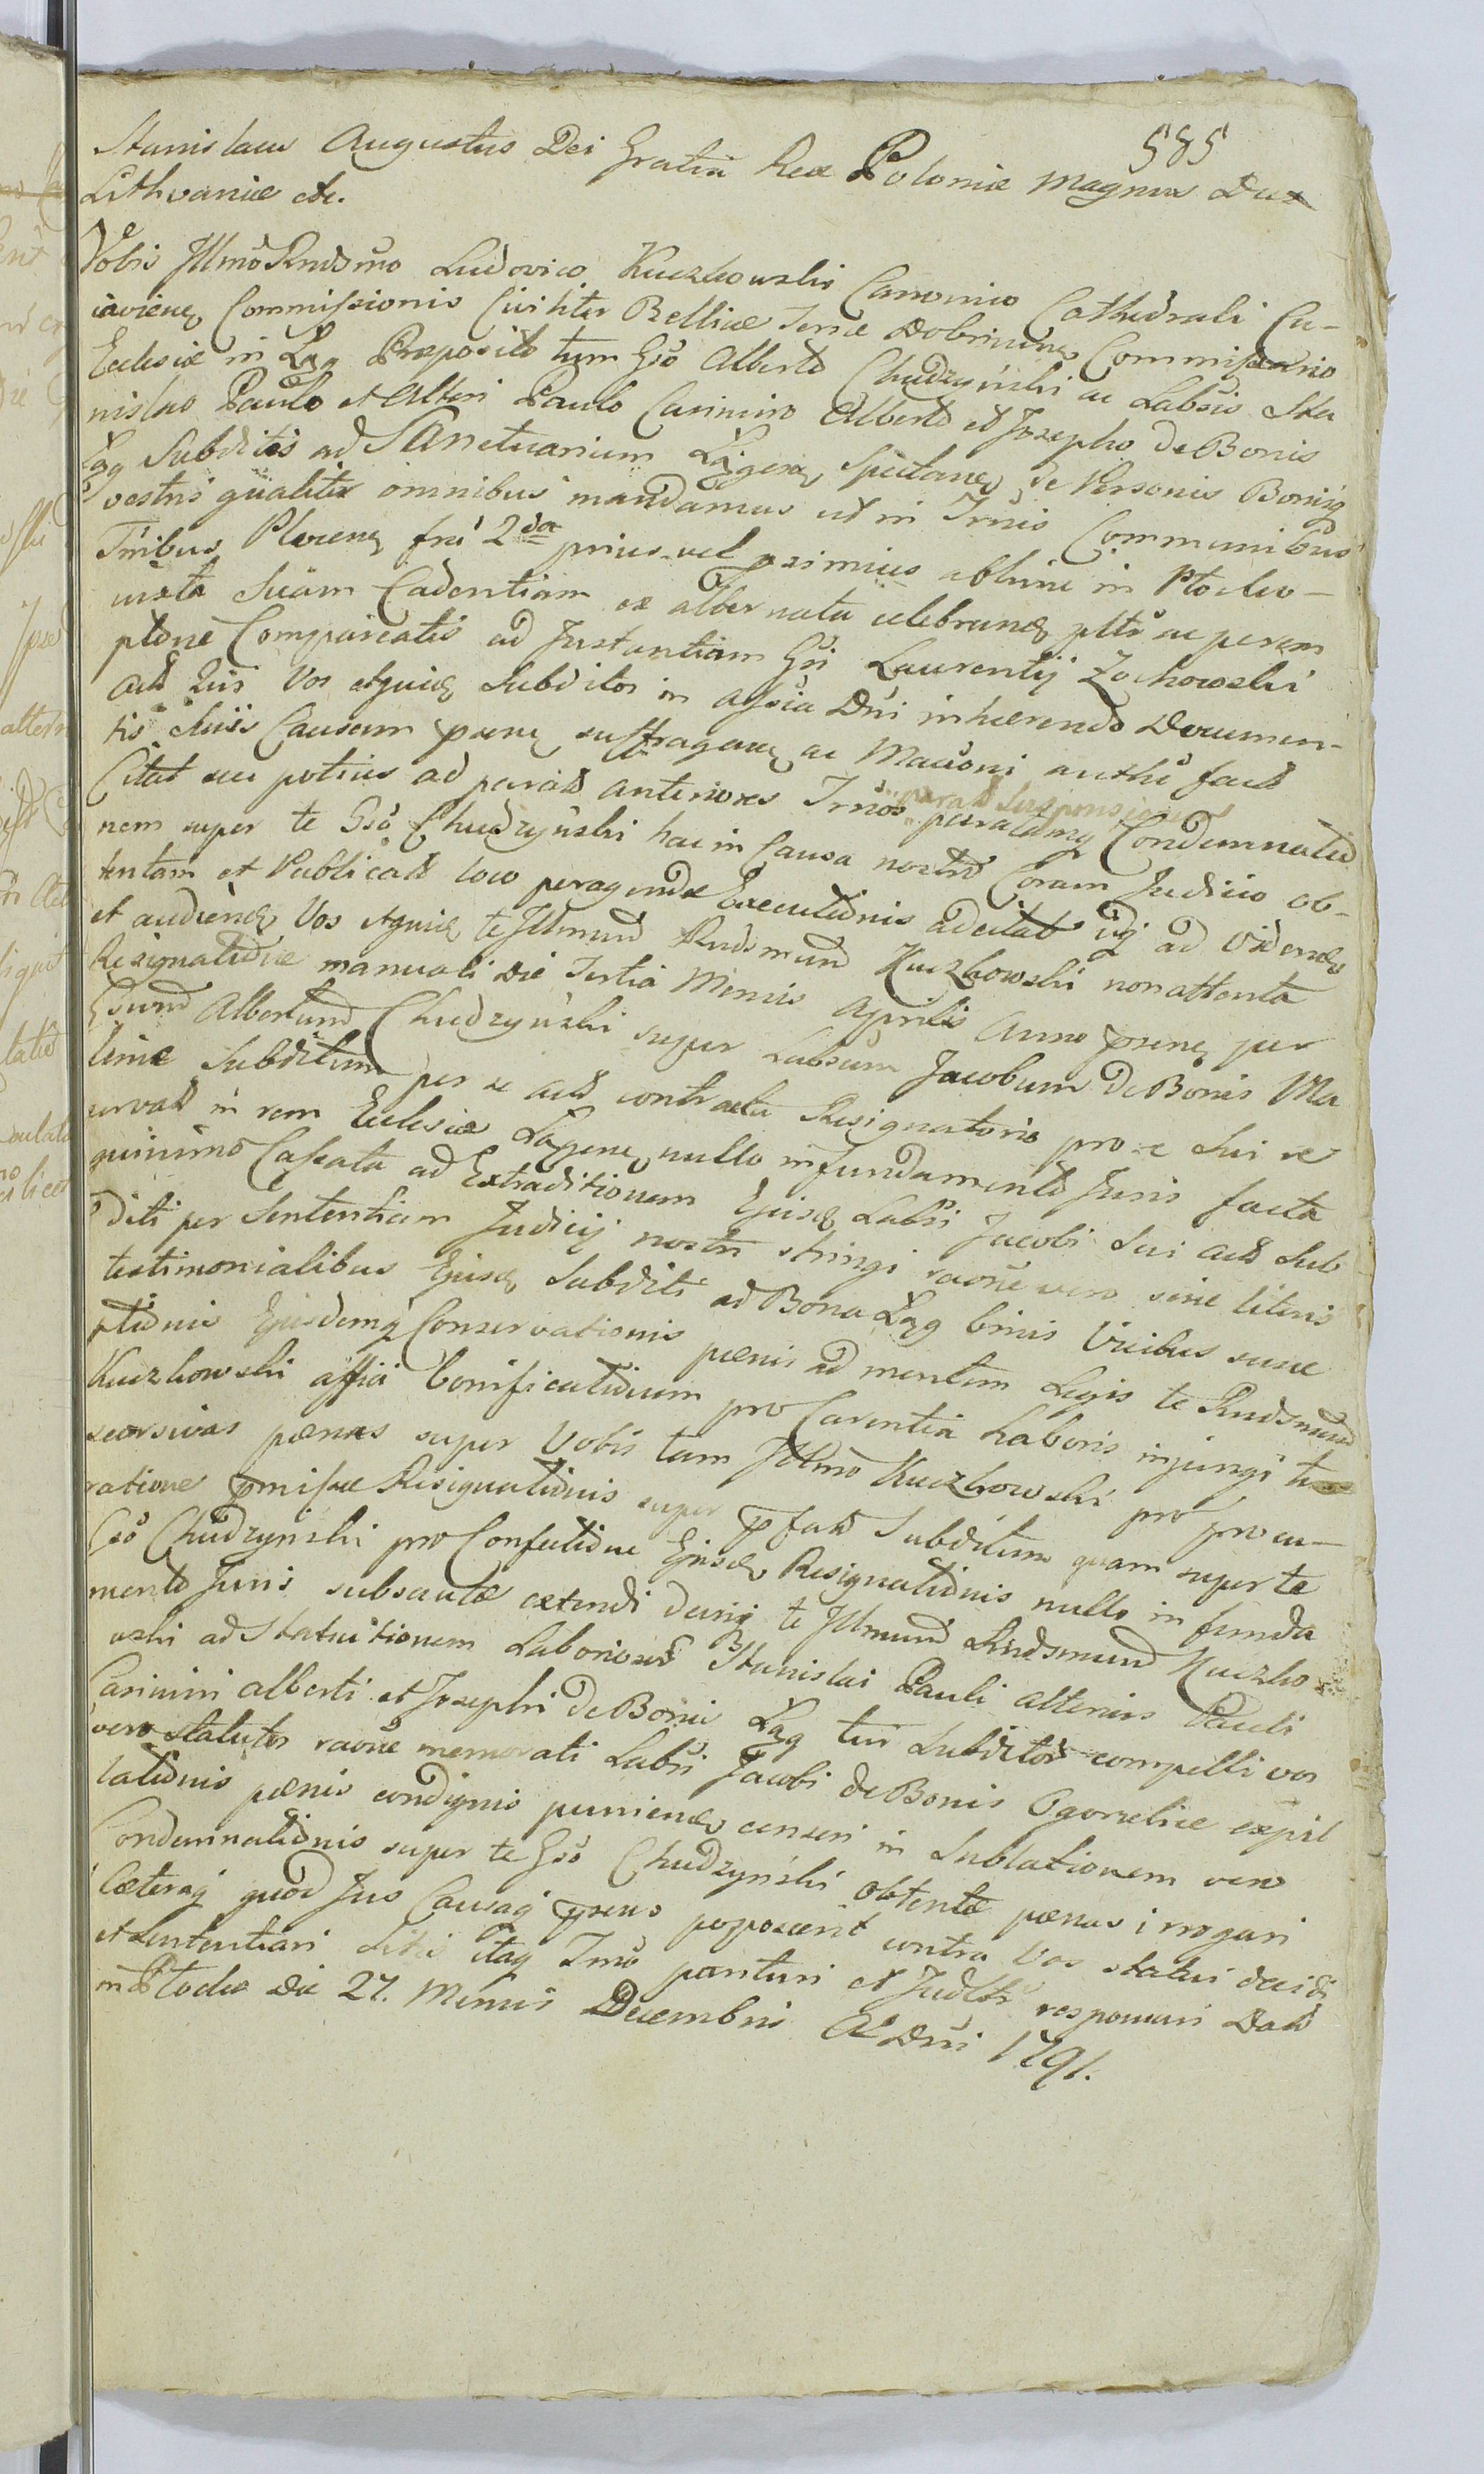 585
Stanislaus Augustus Dei Gratia Rex Poloniæ Magnus Dux
Lithvaniæ etc.
Vobis Illmo Rndsmo Ludovico Kuczkowski Canonico Cathedrali Cu-
javiens Commissionis Civiliter Bellicæ Terræ Dobrinens Commissario
Ecclesiæ in Łęg Præposito tum Gso Alberto Chudzyński ac Labsis Sta
nislao Paulo et Alteri Paulo Casimiro Alberto et Josepho de Bonis
Łęg Subditis ad Sanctuarium Łęgens Spectans de Personis Bonisq
vestris qualiter omnibus mandamus ut in Trnis Communibus
Tribus Plocens fri 2da prius vel proximius abhinc in Płocko
iuxta Suam Cadentiam ex alternata celebrand pltr ac perem
ptorie Compareatis ad Instantiam Gsi Laurentij Zochowski
Act Qui Vos atquiq Subditos in assia Dni inhærendo Documen-
tis Suis Causam præns suffragan ac Maconi authi fact
Citat seu potius ad parat anteriores Trnos parat Suspensione paratamq Condemnatio
nem super te Gso Chudzyński hac in Causa nostro Coram Judicio ob-
tentam et Publicat loco peragendæ Executionis adcitat iq ad Videnq
et audiend Vos atquiq te Illmund Rndsmund Kuczkowski non attenta
Resignatione manuali die Tertia Mensis Aprilis Anno præns per
Gsum Albertum Chudzyński super Labsum Jacobum de Bonis Ma
linie Subditum per se act contracta Resignatorio pro se Sui re
servat in rem Ecclesiæ Łęgens nullo in fundamento Juris facta
quinimo Cassata ad Extraditionem Ejusd Labsi Jacobi Sui act Sub
diti per Sententiam Judicij nostri stringi raone vero sine literis
testimonialibus Ejusd Subditi ad Bona Łęg binis Vicibus susce
ptionis Ejusdemq Conservationis pænis ad mentem Legis te Rndsmund
Kuczkowski affici bonificationem pro Carentia Laboris injungi tum
seorsivas pænas super Vobis tam Illmo Kuczkowski pro procu-
ratione præmissæ Resignationis super præfat Subditum quam super te
Gso Chudzyński pro Confectione Ejusd Resignationis nullo in funda
mento Juris subsecutæ extendi deniq te Illmund Rndsmund Kuczko
wski ad Statuitionem Laboriosor Stanislai Pauli alterius Pauli
Casimiri Alberti et Josephi de Bonis Łęg tui Subditos compelli vos
vero statutos raone memorati Labsi Jacobi de Bonis Ogorzelice expil
lationis pænis condignis puniend censeri in Sublationem vero
Condemnationis super te Gso Chudzyński obtentæ pænas irrogari
Cæteraq quod Jus Causaq præns poposcerit contra Vos statui decidi
et Sententiari Sitis itaq Trno parituri et Judltr responsuri Dat
in Płocko Die 27. Mensis Decembris Ao Dni 1791.